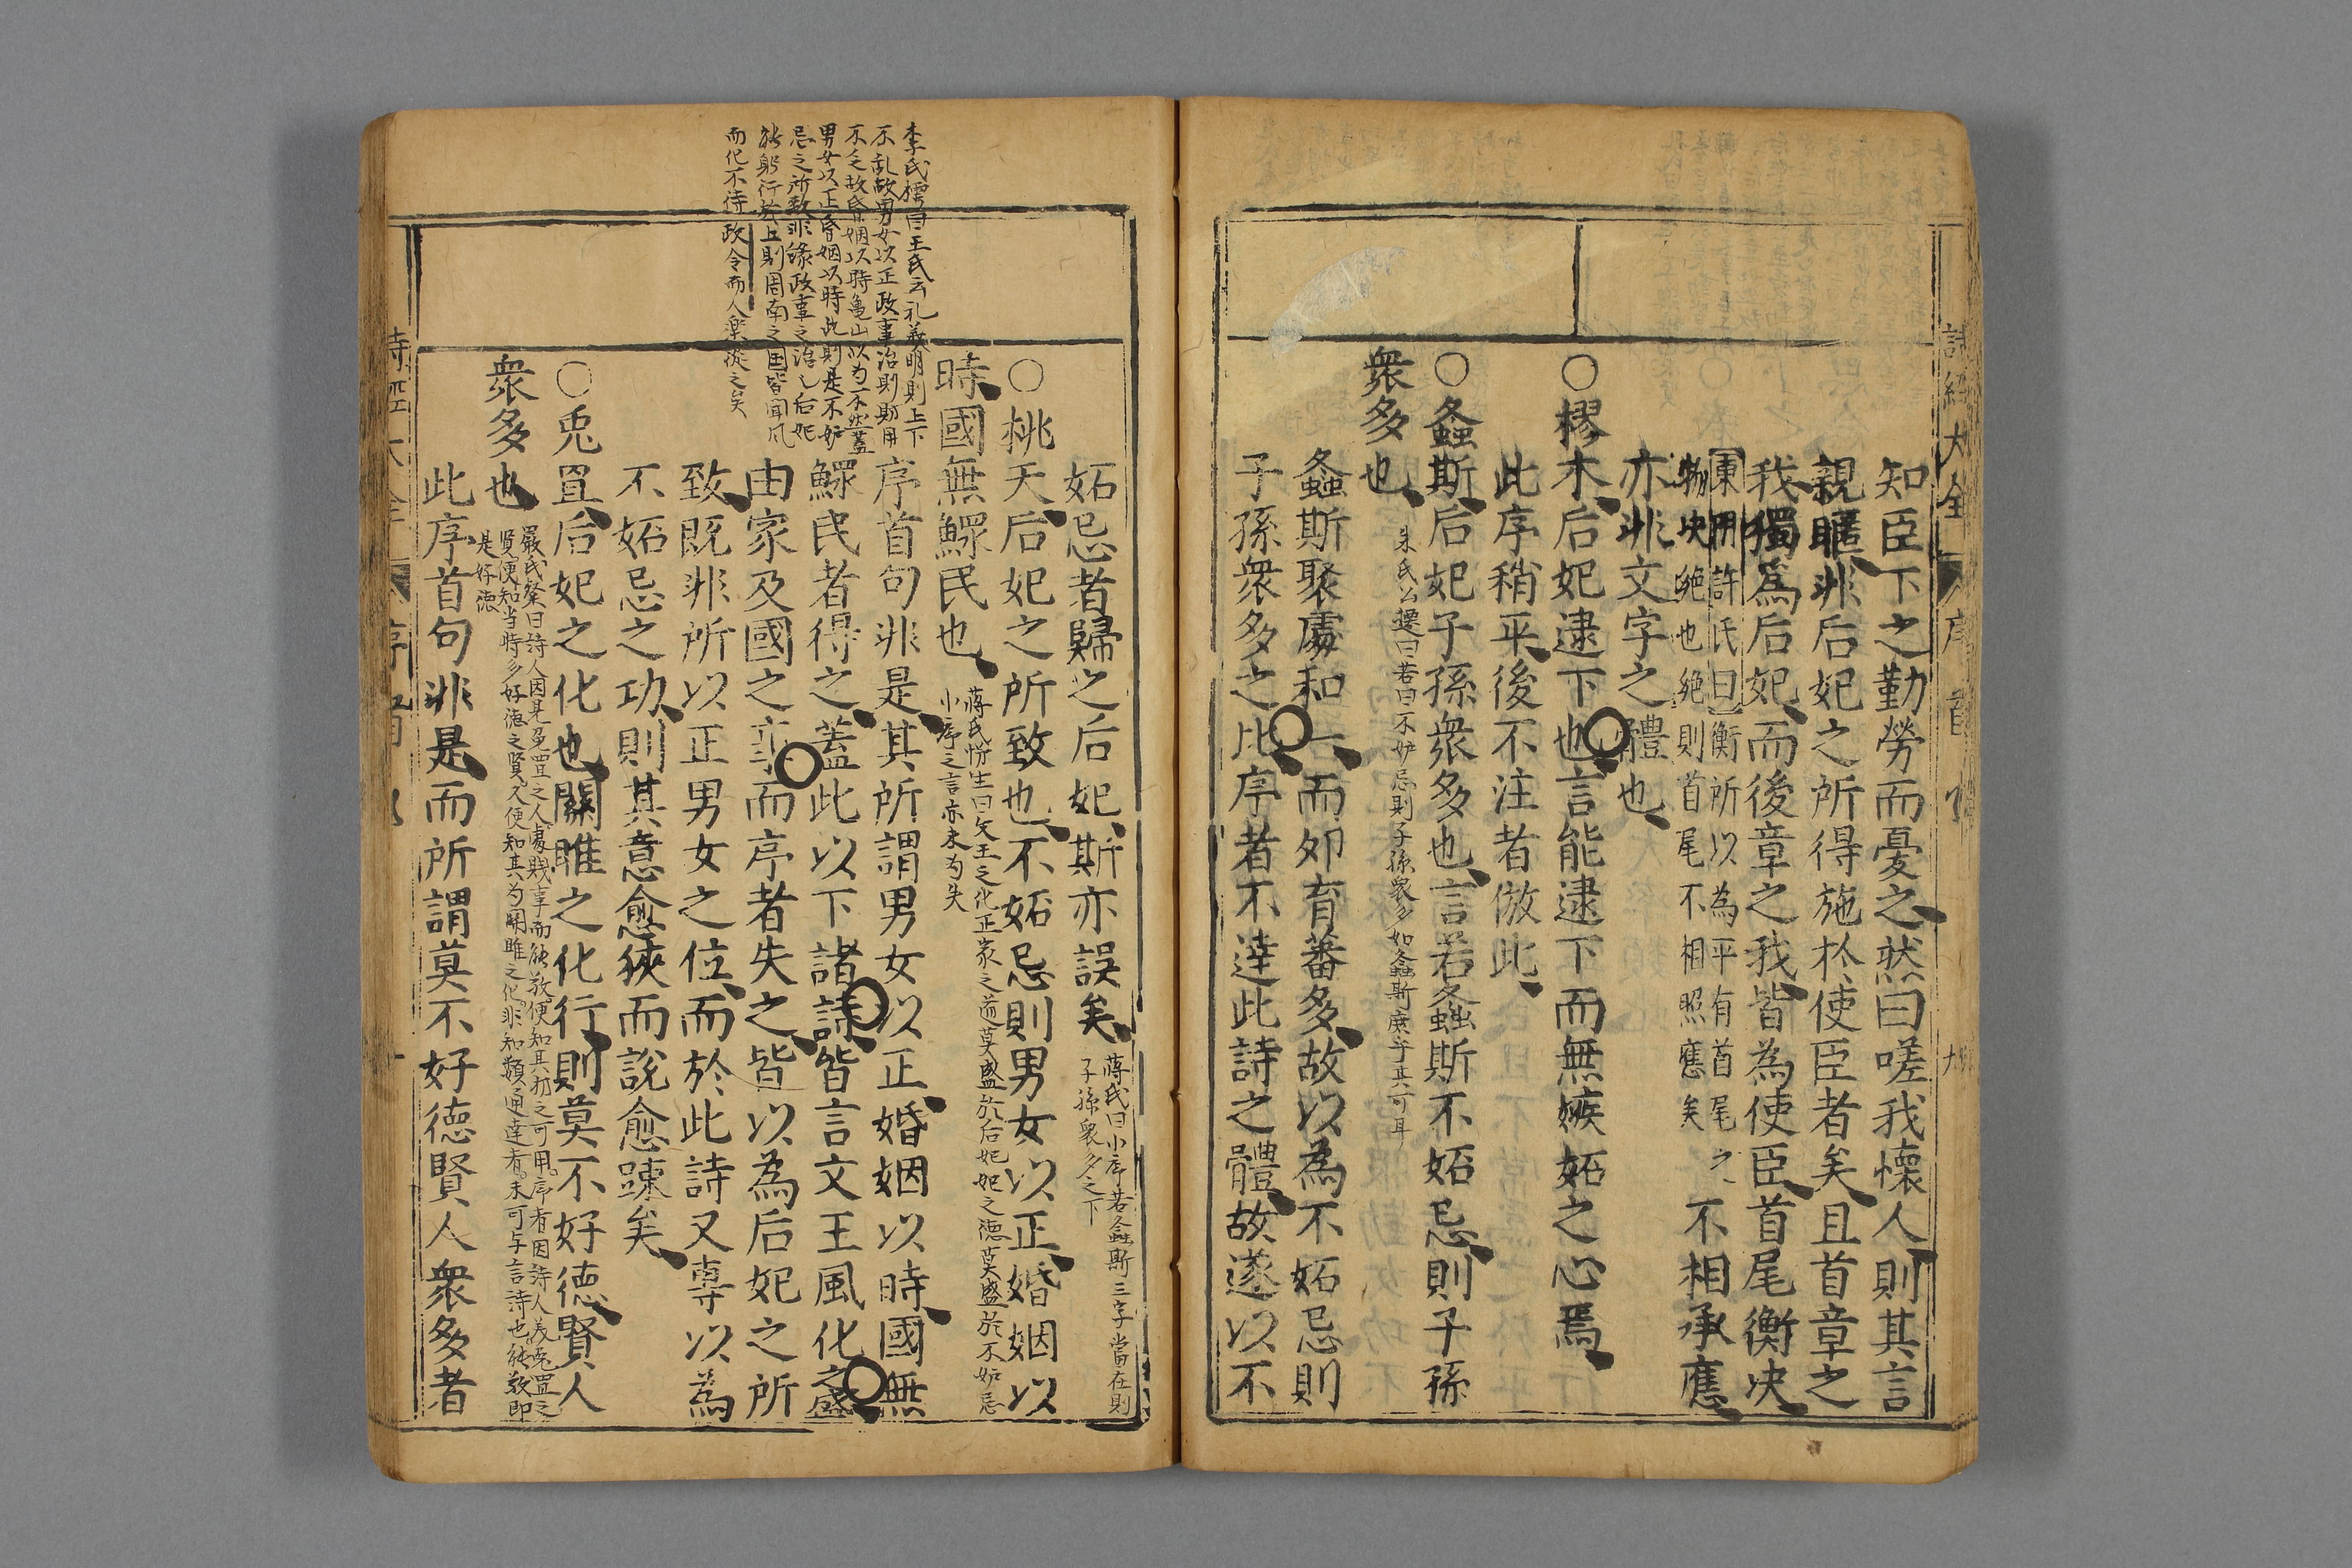 知臣下之勤勞而憂之然曰嗟我懷人則其言
親暱非后妃之所得施於使臣者矣且首章之
我獨為后妃而後章之我皆為使臣首尾衡决
東陽許氏曰衡所以為平有首尾之
物决絕也絕則首尾不相照應矣
不相承應
亦非文字之體也
○樛木后妃逮下也言能逮下而無嫉妬之心焉
此序稍平後不注者倣此
○螽斯后妃子孫衆多也言若螽斯不妬忌則子孫
衆多也
朱氏公遷曰若曰不妒忌則子孫衆多如螽斯庶乎其可耳
螽斯聚處和一而夘育蕃多故以為不妬忌則
子孫衆多之比序者不逹此詩之體故遂以不
李氏樗曰王氏云礼義明則上下
不乱故男女以正政事治則財用
不乏故昏姻以時龜山以为不然蓋
男女以正昏姻以時此則是不妒
忌之所致非緣政事之治也后妃
能躬行於上則周南之国皆聞風
而化不待政令而人樂從之矣
妬忌者歸之后妃斯亦誤矣
蔣氏曰小序若螽斯三字當在則
子孫衆多之下
○桃夭后妃之所致也不妬忌則男女以正婚姻以
時國無鰥民也
蔣氏悌生曰文王之化正家之道莫盛於后妃妃之德莫盛於不妒忌
小序之言亦未为失
序首句非是其所謂男女以正婚姻以時國無
鰥民者得之蓋此以下諸詩皆言文王風化之盛
由家及國之事而序者失之皆以為后妃之所
致既非所以正男女之位而於此詩又專以為
不妬忌之功則其意愈狹而說愈踈矣
○兎罝后妃之化也關雎之化行則莫不好德賢人
衆多也
嚴氏粲曰詩人因見兎罝之人處賎事而能敬便知其才之可用序者因詩人美兎罝之
賢便知当時多好德之賢又便知其为関雎之化非知類通達者未可与言詩也能敬即
是好德
此序首句非是而所謂莫不好德賢人衆多者